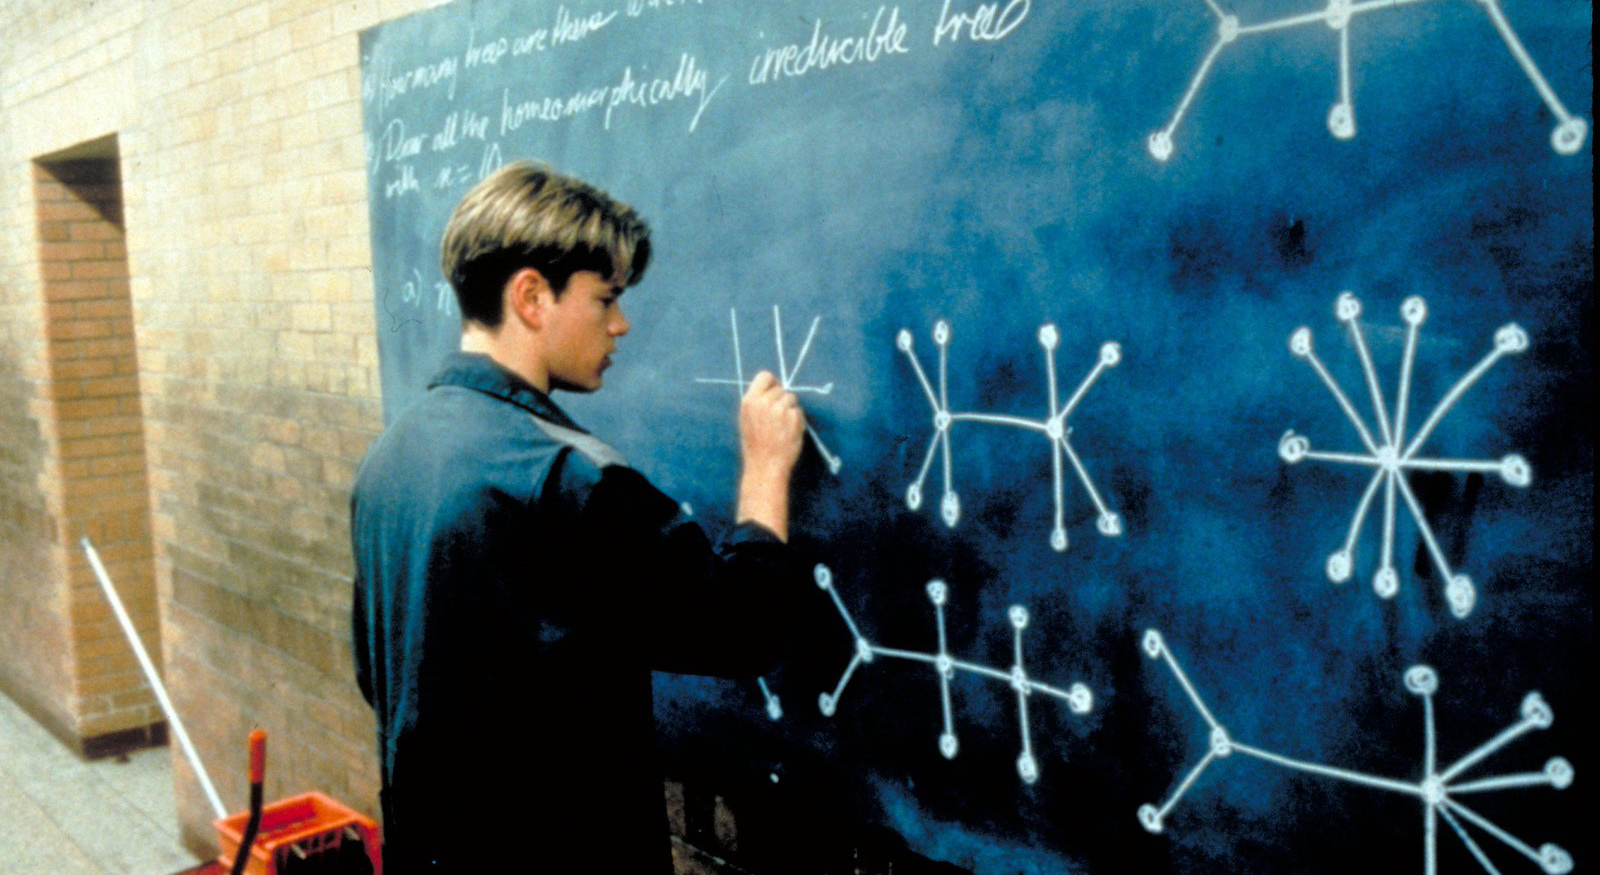 How many trees are there
Draw all the homeomorphically irreducible trees
with n = 10
a)